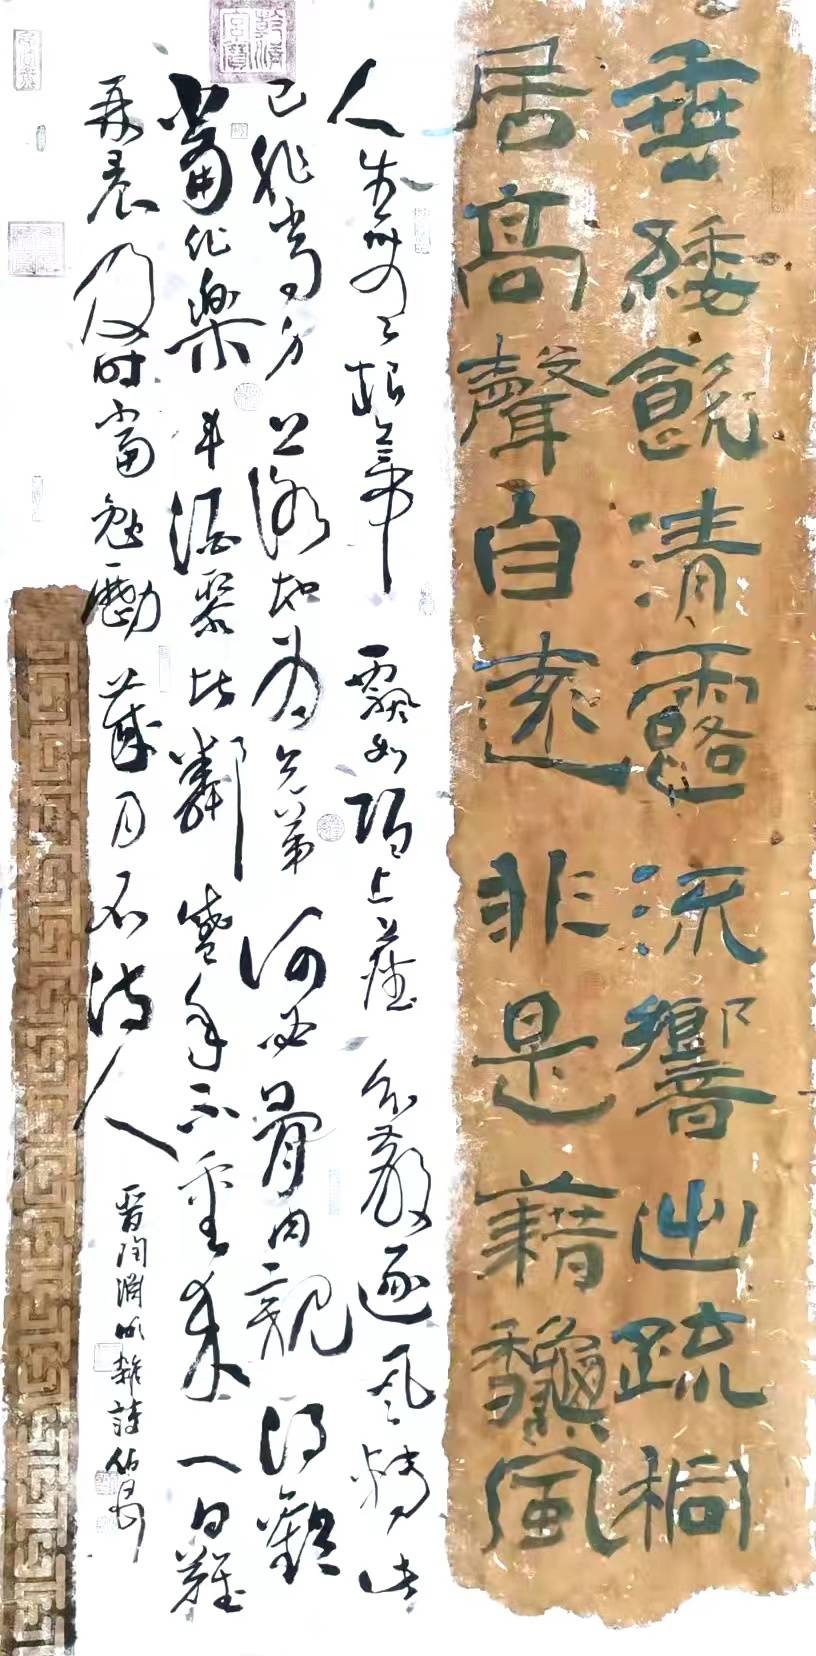 垂緌飲清露流響出疏桐
居高聲自遠非是藉龝風
人生無根蒂飄如陌上塵分散逐風轉此
已非常身落地为兄弟何必骨肉親得歡
當作樂斗酒聚比鄰盛年不重來一日難
再晨及時當勉勵歲月不待人
晋陶淵明雜詩